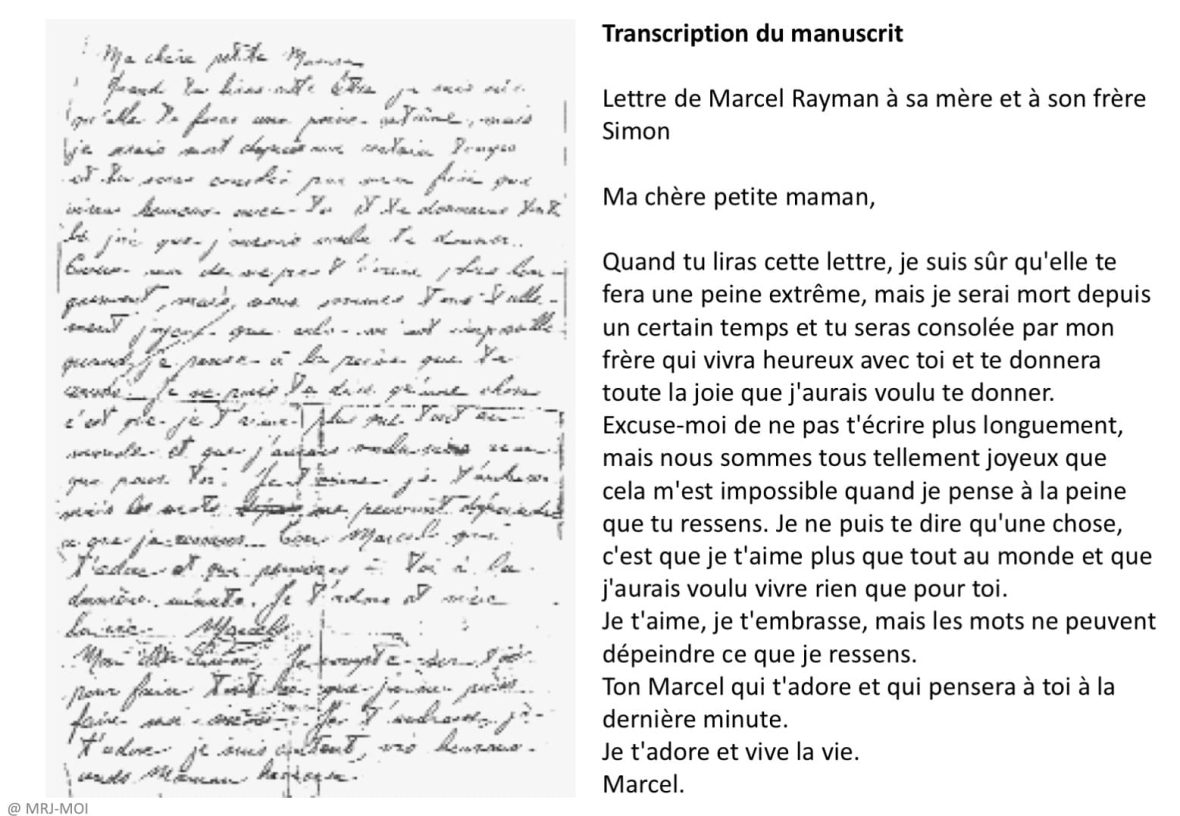 Ma chère petite Maman
Quand tu liras cette lettre je suis sûr
qu'elle te fera une peine extrême, mais
je serais mort depuis un certain temps
et tu seras consolée par mon frère qui
vivra heureux avec toi et te donnera toute
la joie que j'aurais voulu te donner.
Excuse moi de ne pas t'écrire plus lon-
guement, mais nous sommes tous telle-
ment joyeux que cela m'est impossible
quand je pense à la peine que tu
Je ne puis te dire qu'une chose
c'est que je t'aime plus que tout au
monde et que j'aurais voulu vivre rien
que pour toi. Je t'aime je t'embrasse
mais les mots ne peuvent dépeindre
ce que je ressens. Ton Marcel qui
t'adore et qui pensera à toi à la
dernière minute. Je t'adore et vive
la vie. Marcel
Mon cher Simon, Je compte sur toi
pour faire tout ce que je ne puis
faire moi-même. Je t'embrasse, je
t'adore je suis content, vis heureux
Maman heureuse.
@ MRJ-MOI
Transcription du manuscrit
Lettre de Marcel Rayman à sa mère et à son frère
Simon
Ma chère petite maman,
Quand tu liras cette lettre, je suis sûr qu'elle te
fera une peine extrême, mais je serai mort depuis
un certain temps et tu seras consolée par mon
frère qui vivra heureux avec toi et te donnera
toute la joie que j'aurais voulu te donner.
Excuse-moi de ne pas t'écrire plus longuement,
mais nous sommes tous tellement joyeux que
cela m'est impossible quand je pense à la peine
que tu ressens. Je ne puis te dire qu'une chose,
c'est que je t'aime plus que tout au monde et que
j'aurais voulu vivre rien que pour toi.
Je t'aime, je t'embrasse, mais les mots ne peuvent
dépeindre ce que je ressens.
Ton Marcel qui t'adore et qui pensera à toi à la
dernière minute.
Je t'adore et vive la vie.
Marcel.